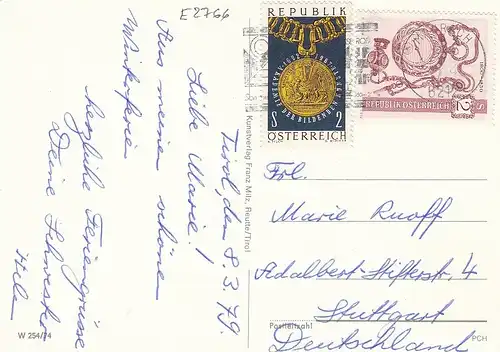 E2766
Tirol, den 8.3.79.
Liebe Marie!
Aus meinen schönen
Winterferien
herzliche Feriengrüsse
Deine Schwester
W 254/74
Kunstverlag Franz Milz, Reutte/Tirol
REPUBLIK
S 2
ÖSTERREICH
REPUBLIK ÖSTERREICH
Frl.
Marie Ruoff
Adalbert-Stifterstr. 4
Stuttgart
Postleitzahl
Deutschland
PCH